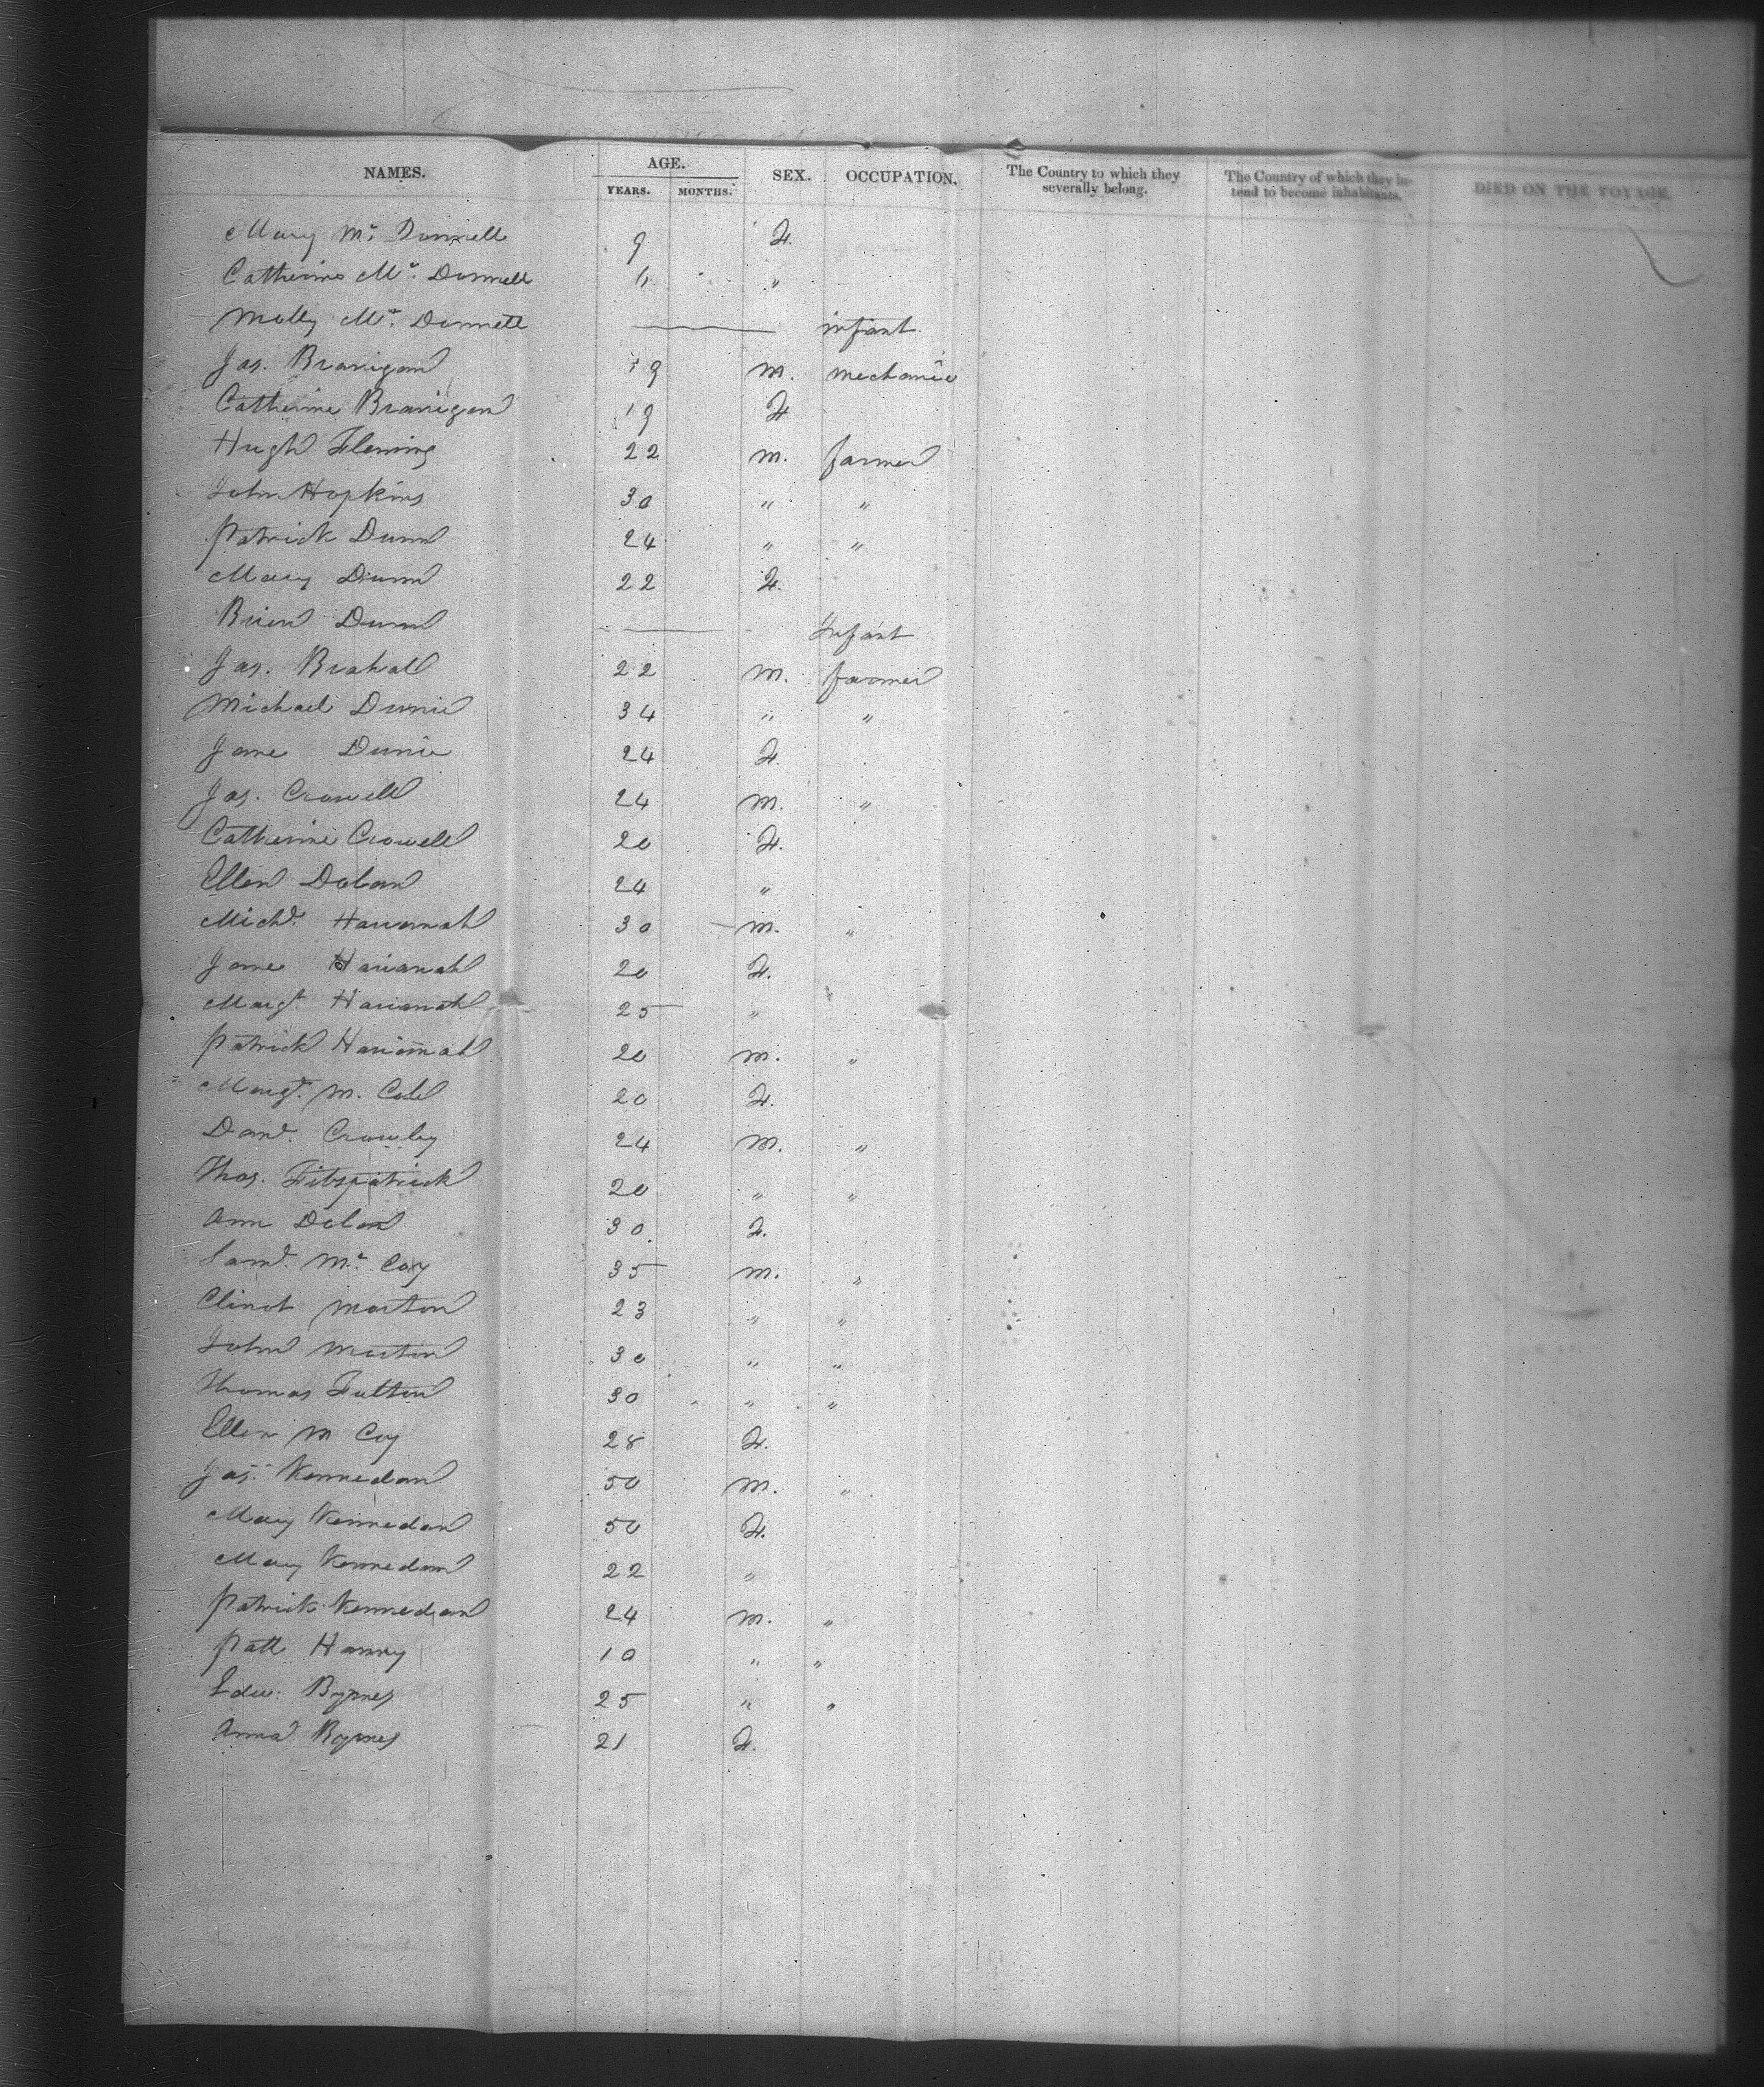 NAMES. AGE. SEX. OCCUPATION. The Country to which they severally belong. The Country of which they intend to become inhabitants. DIED ON THE VOYAGE.
YEARS. MONTHS.
Mary Mc. Donnell 9 F.
Catherine Mc. Donnell 6 "
Molly Mc. Donnell infant
Jas. Branigan 19 M. mechanic
Catherine Branigan 19 F
Hugh Fleming 22 M. farmer
John Hopkins 30 " "
Patrick Dunn 24 " "
Mary Dunn 22 F.
Brien Dunn Infant
Jas. 22 M. farmer
Michael Dunie 34 " "
Jane Dunie 24 F.
Jas. Crowell 24 M. "
Catherine Crowell 20 F.
Ellen Dolan 24 "
Michl. Havannah 30 M. "
Jane Havanah 20 F.
Margt. Havanah 25 "
Patrick Havannah 20 M. "
Margt. M. 20 F.
Danl. Crowley 24 M. "
Thos. Fitzpatrick 20 " "
Ann Dolan 30. F.
Saml. Mc. Coy 35 M. "
Clinot Morton 23 " "
John Morton 30 " "
Thomas Fulton 30 " "
Ellen M Coy 28 F.
Jas. Kennedan 50 M. "
Mary Kennedan 50 F.
Mary Kennedan 22 "
Patrick Kennedan 24 M. "
Patt Hanny 10 " "
Edw. Byrnes 25 " "
Anna Byrnes 21 F.